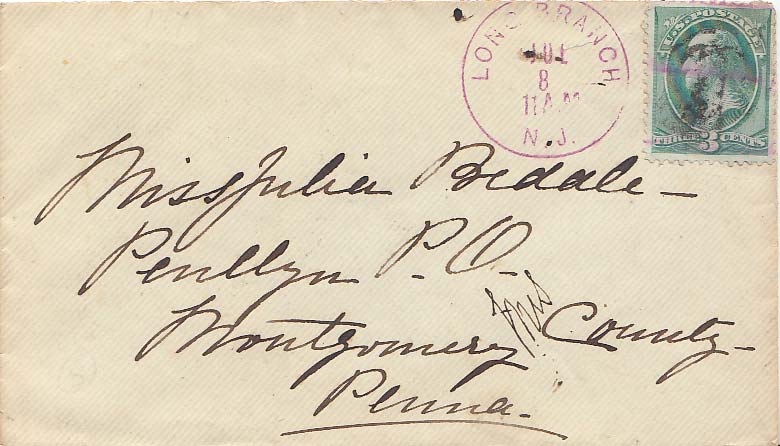 LONG BRANCH
JUL
8
11 A.M
N.J.
U.S. POSTAGE
3 CENTS
Miss Julia Bedale
Penllyn P.O.
Montgomery County
Penna.